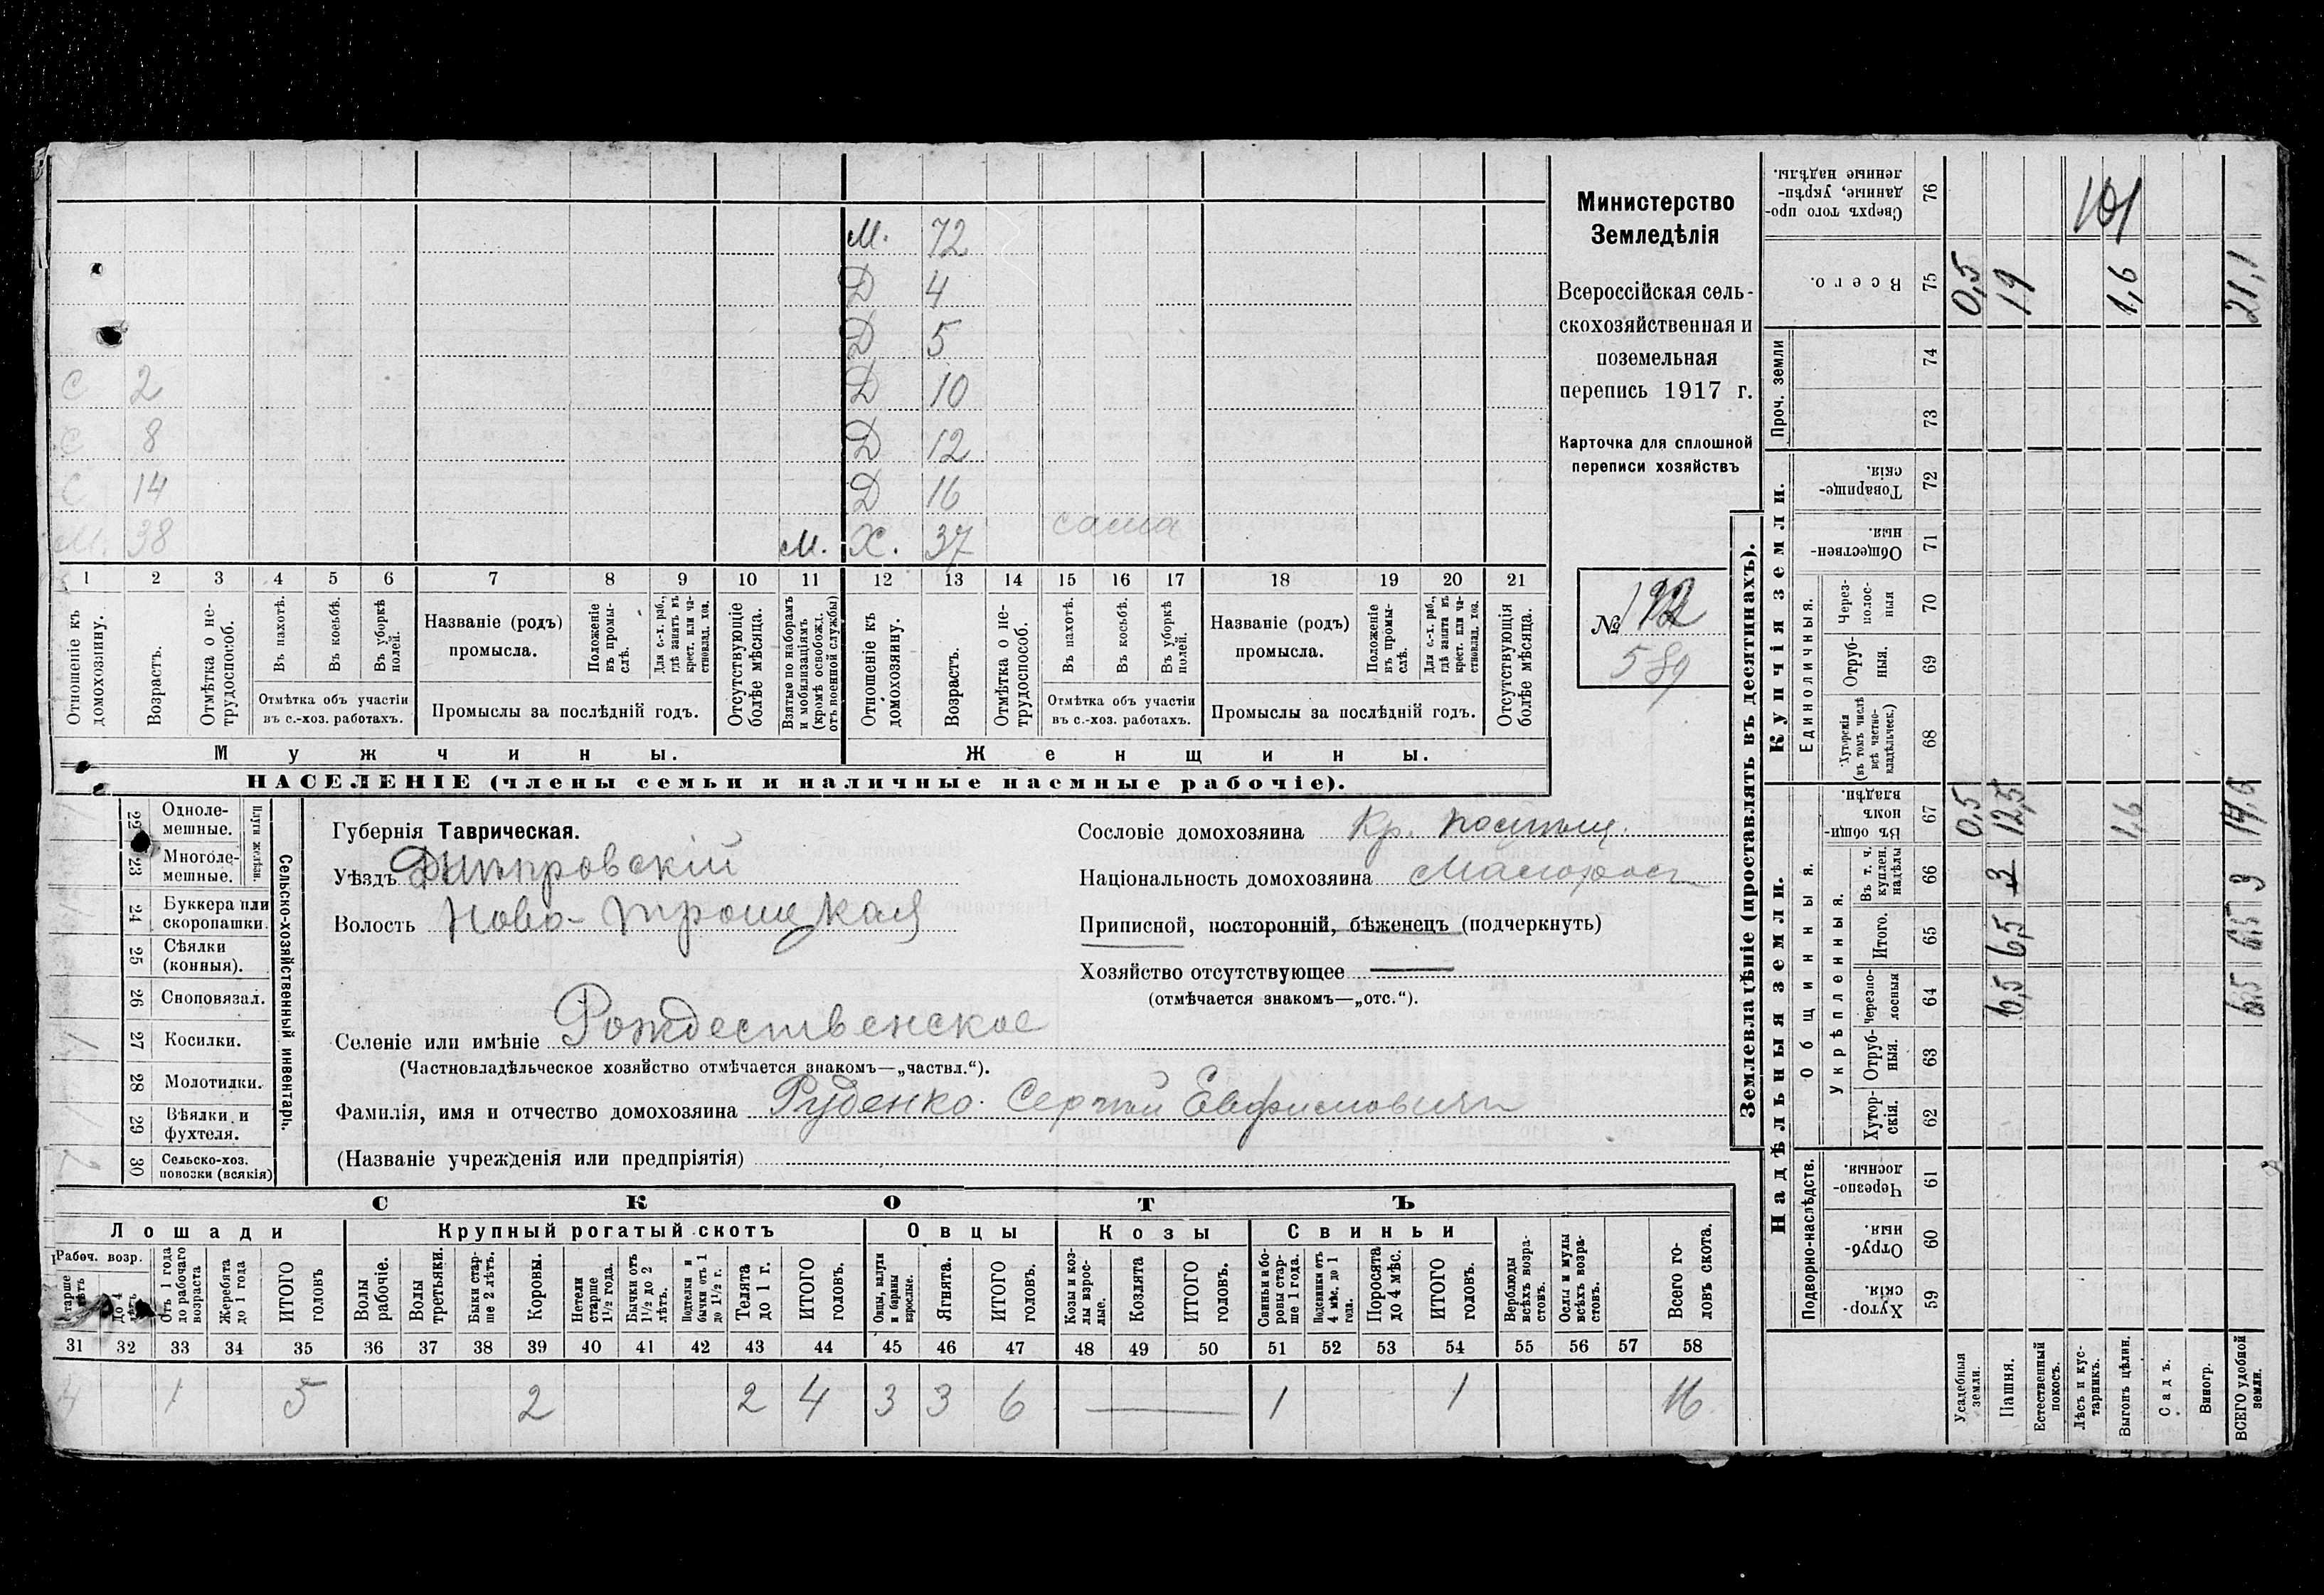 М. 72
Д 4
Д 5
С 2 Д 10
С 8 Д 12
С 14 Д 16
М. 38 М. Х. 37 сама
1 2 3 4 5 6 7 8 9 10 11 12 13 14 15 16 17 18 19 20 21
Отношеніе къ домохозяину.
Возрастъ.
Отмѣтка о нетрудоспособ.
Въ пахотѣ.
Въ косьбѣ.
Въ уборкѣ полей.
Отмѣтка объ участіи
въ с.-хоз. работахъ.
Названіе (родъ)
промысла.
Положеніе въ промыслѣ.
Для с.-х. раб., гдѣ занятъ въ крест. или частновлад. хоз.
Промыслы за послѣдній годъ.
Отсутствующіе болѣе мѣсяца.
Взятые по наборамъ и мобилизаціямъ (кромѣ освобожд. отъ военной службы)
Отношеніе къ домохозяину.
Возрастъ.
Отмѣтка о нетрудоспособ.
Въ пахотѣ.
Въ косьбѣ.
Въ уборкѣ полей.
Отмѣтка объ участіи
въ с.-хоз. работахъ.
Названіе (родъ)
промысла.
Положеніе въ промыслѣ.
Для с.-х. раб., гдѣ занята въ крест. или частновлад. хоз.
Промыслы за послѣдній годъ.
Отсутствующія болѣе мѣсяца.
Мужчины. Женщины.
НАСЕЛЕНІЕ (члены семьи и наличные наемные рабочіе).
Министерство
Земледѣлія
Всероссійская сель-
скохозяйственная и
поземельная
перепись 1917 г.
Карточка для сплошной
переписи хозяйствъ
№ 192
589
Сельско-хозяйственный инвентарь.
Плуги желѣзн.
22 Одноле-
мешные.
23 Многоле-
мешные.
24 Буккера или
скоропашки.
25 Сѣялки
(конныя).
26 Сноповязал.
27 Косилки. 1
28 Молотилки.
29 Вѣялки и
фухтеля. 1
30 Сельско-хоз.
повозки (всякія)
Губернія Таврическая.
Уѣздъ Днѣпровскій
Волость Ново-Троицкая
Селеніе или имѣніе Рождественское
(Частновладѣльческое хозяйство отмѣчается знакомъ—„частвл.“).
Фамилія, имя и отчество домохозяина Руденко Сергѣй Евфимовичъ
(Названіе учрежденія или предпріятія)
Сословіе домохозяина Кр.
Національность домохозяина Малоросъ
Приписной, посторонній, бѣженецъ (подчеркнуть)
Хозяйство отсутствующее —
(отмѣчается знакомъ—„отс.“).
СКОТЪ
Лошади Крупный рогатый скотъ Овцы Козы Свиньи
Рабоч. возр.
Отъ 1 года до рабочаго возраста
Жеребята до 1 года
ИТОГО головъ
Волы рабочіе.
Волы третьяки.
Быки старше 2 лѣтъ.
Коровы.
Нетели старше 1½ года.
Бычки отъ 1½ до 2 лѣтъ.
Подтелки и бычки отъ 1 до 1½ г.
Телята до 1 г.
ИТОГО головъ.
Овцы, валухи и бараны взрослые.
Ягнята.
ИТОГО головъ.
Козы и козлы взрослые.
Козлята
ИТОГО головъ.
Свиньи и боровы старше 1 года.
Подсвинки отъ 4 мѣс. до 1 года.
Поросята до 4 мѣс.
ИТОГО головъ.
Верблюды всѣхъ возрастовъ.
Ослы и мулы всѣхъ возрастовъ.
Всего головъ скота.
31 32 33 34 35 36 37 38 39 40 41 42 43 44 45 46 47 48 49 50 51 52 53 54 55 56 57 58
4 1 5 2 2 4 3 3 6 — 1 1 16
Землевладѣніе (проставлять въ десятинахъ).
Надѣльныя земли.
Купчія земли.
Проч. земли
Подворно-наслѣдств.
Общинныя.
Укрѣпленныя.
Единоличныя.
Сверхъ того проданные, укрѣпленные надѣлы. 76
Всего. 75 0,5 19 1,6 21,1
74
73
Товарищескія. 72
Общественныя. 71
Черезполосныя 70
Отрубныя. 69
Хуторскія (въ томъ числѣ всѣ частновладѣльческ.) 68
Въ общинномъ владѣн. 67 0,5 12,5 1,6 14,6
Въ т. ч. куплен. надѣлы 66 3 3
Итого. 65 6,5 6,5
Черезполосныя 64 6,5 6,5
Отрубныя. 63
Хуторскія. 62
Черезполосныя. 61
Отрубныя. 60
Хуторскія. 59
Усадебныя земли.
Пашня.
Естественный покосъ.
Лѣсъ и кустарникъ.
Выгонъ цѣлин.
Садъ.
Виногр.
ВСЕГО удобной земли.